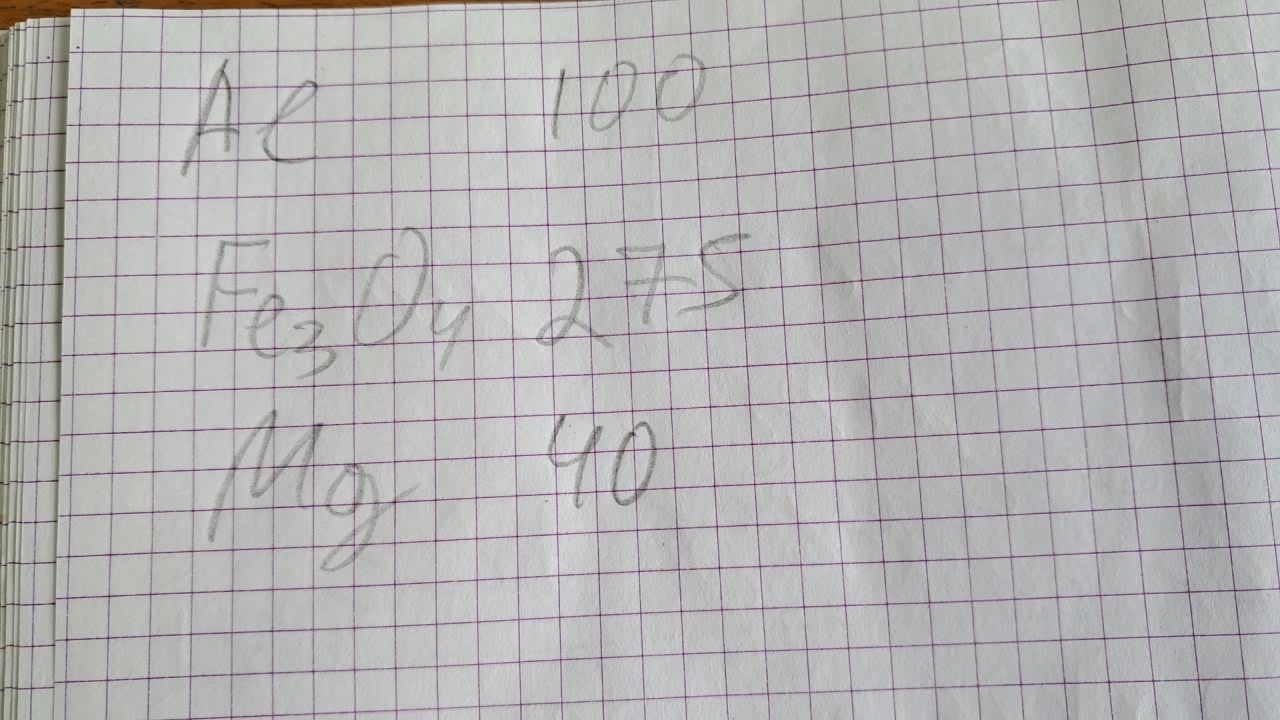 Al 100
Fe₃O₄ 275
Mg 40